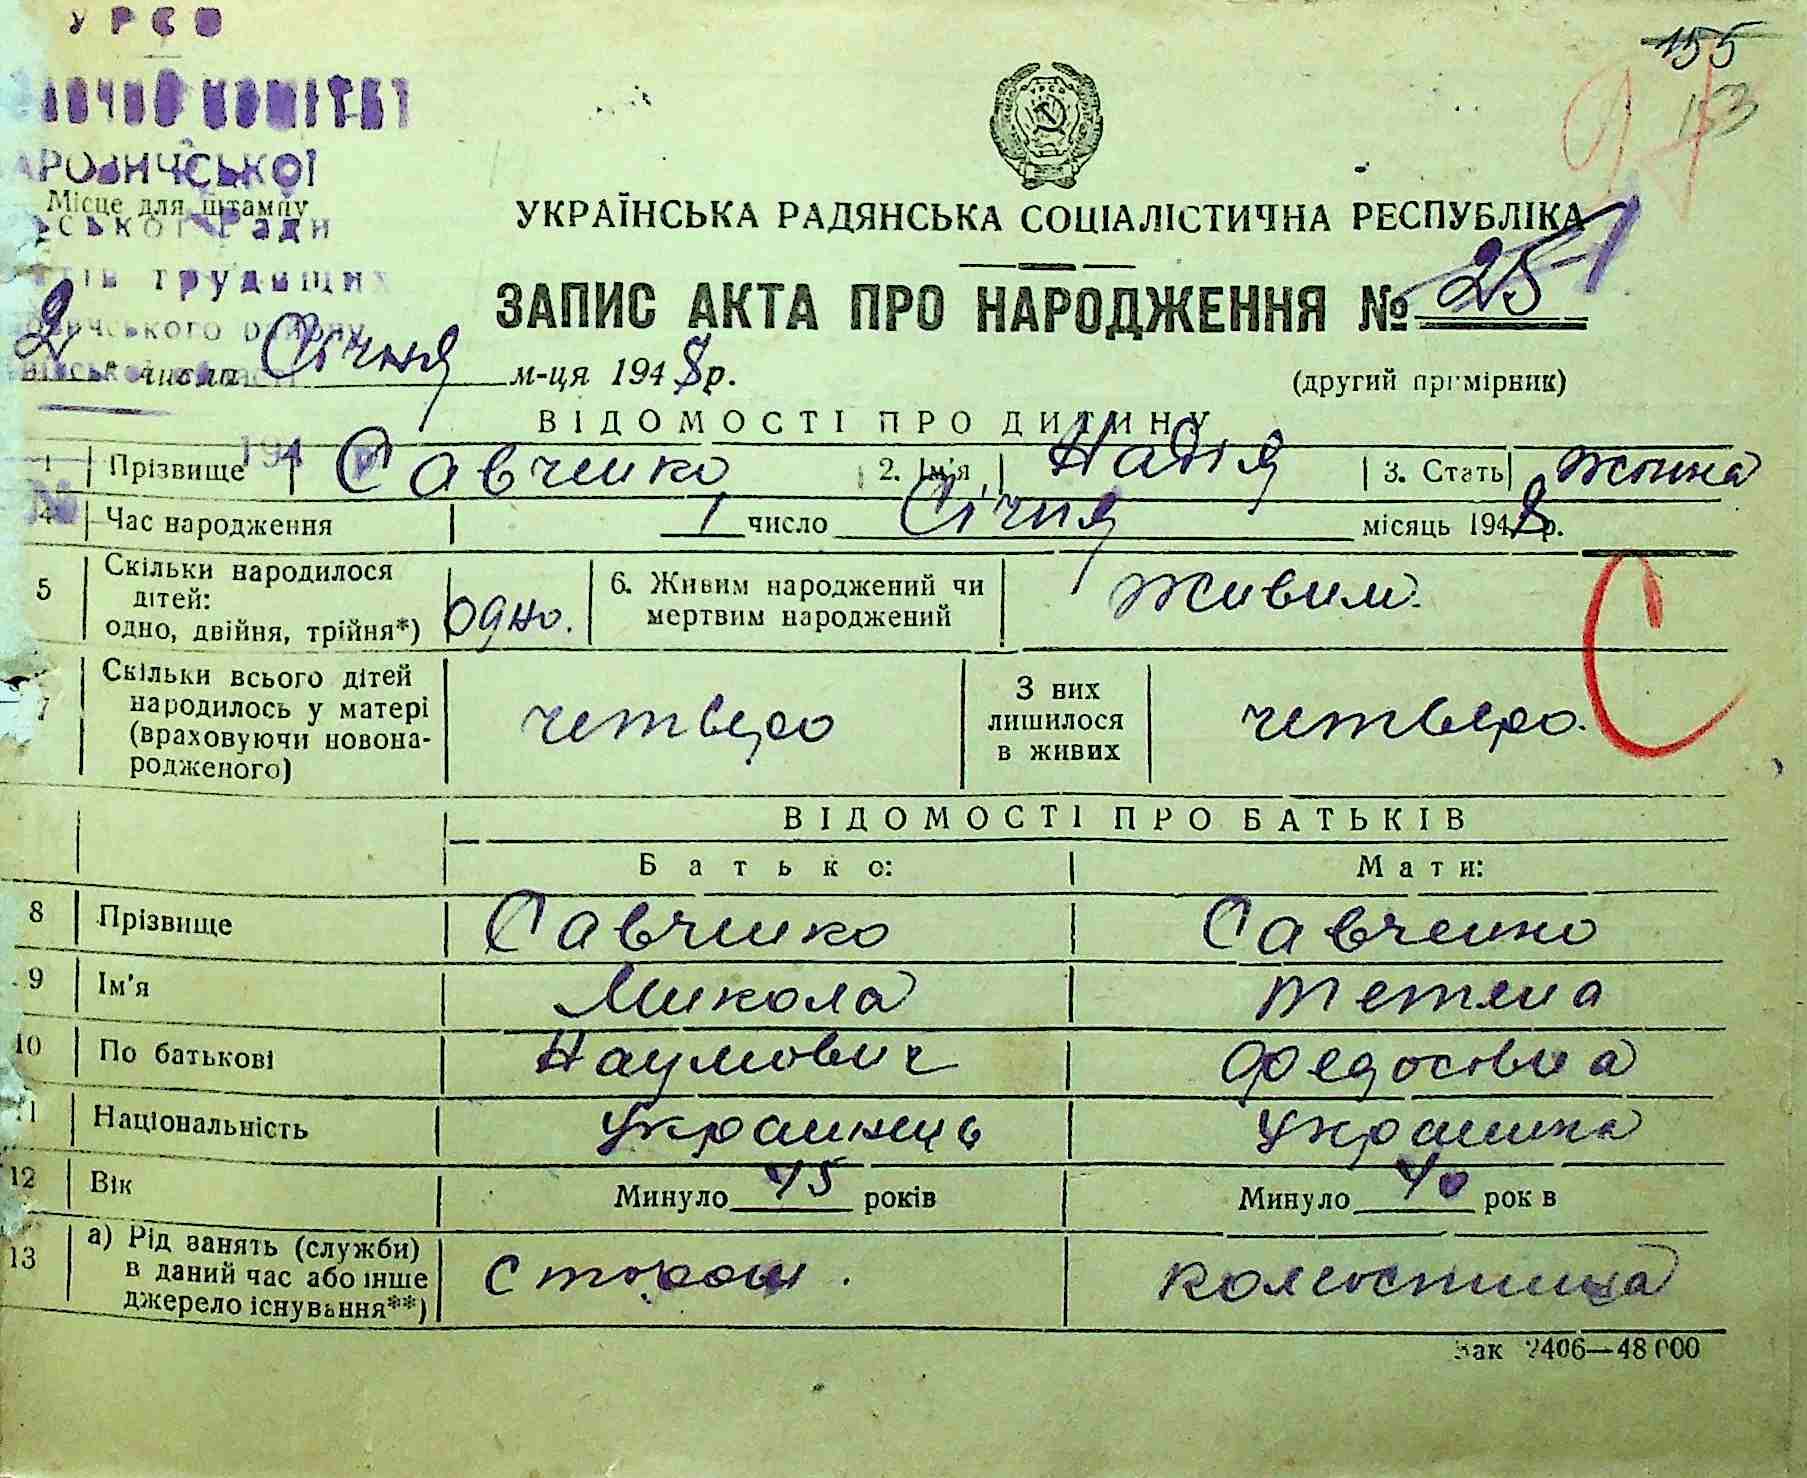 УРСР
КОМІТЕТ
155
153
Місце для штампу
Ради
трудящих
УКРАЇНСЬКА РАДЯНСЬКА СОЦІАЛІСТИЧНА РЕСПУБЛІКА
ЗАПИС АКТА ПРО НАРОДЖЕННЯ №
2 числа Січня м-ця 1948 р.
(другий примірник)
ВІДОМОСТІ ПРО ДИТИНУ
1 Прізвище Савченко 2. Ім'я Надія 3. Стать жіноча
4 Час народження 1 число Січня місяць 1948 р.
5 Скільки народилося дітей: одно, двійня, трійня*) одно. 6. Живим народжений чи мертвим народжений живим.
7 Скільки всього дітей народилось у матері (враховуючи новонародженого) четверо З них лишилося в живих четверо.
С
ВІДОМОСТІ ПРО БАТЬКІВ
Батько: Мати:
8 Прізвище Савченко Савченко
9 Ім'я Микола Тетяна
10 По батькові Наумович Федосівна
11 Національність Українець Українка
12 Вік Минуло 45 років Минуло 40 років
13 а) Рід занять (служби) в даний час або інше джерело існування**) Сторож. колгоспниця
Зак 2406—48 000